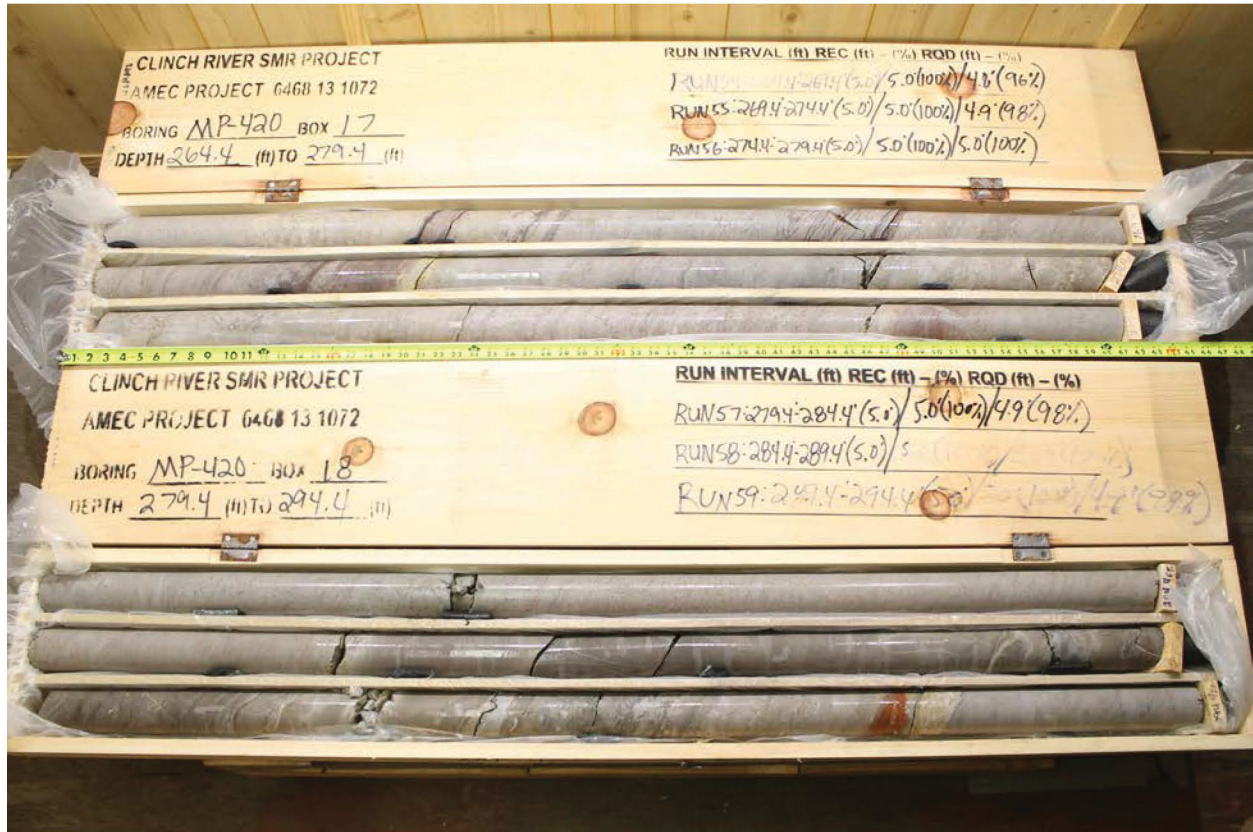 CLINCH RIVER SMR PROJECT
AMEC PROJECT 6468 13 1072
BORING MP-420 BOX 17
DEPTH 264.4 (ft) TO 279.4 (ft)
RUN INTERVAL (ft) REC (ft) – (%) RQD (ft) – (%)
(5.0)/5.0'(100%)/4.8'(96%)
RUN55:269.4'-274.4'(5.0)/5.0'(100%)/4.9'(98%)
RUN56:274.4'-279.4'(5.0)/5.0'(100%)/5.0'(100%)
1 2 3 4 5 6 7 8 9 10 11
CLINCH RIVER SMR PROJECT
AMEC PROJECT 6468 13 1072
BORING MP-420 BOX 18
DEPTH 279.4 (ft) TO 294.4 (ft)
RUN INTERVAL (ft) REC (ft) – (%) RQD (ft) – (%)
RUN57:279.4'-284.4'(5.0)/5.0'(100%)/4.9'(98%)
RUN58:284.4'-289.4'(5.0)/
RUN59:289.4'-294.4'